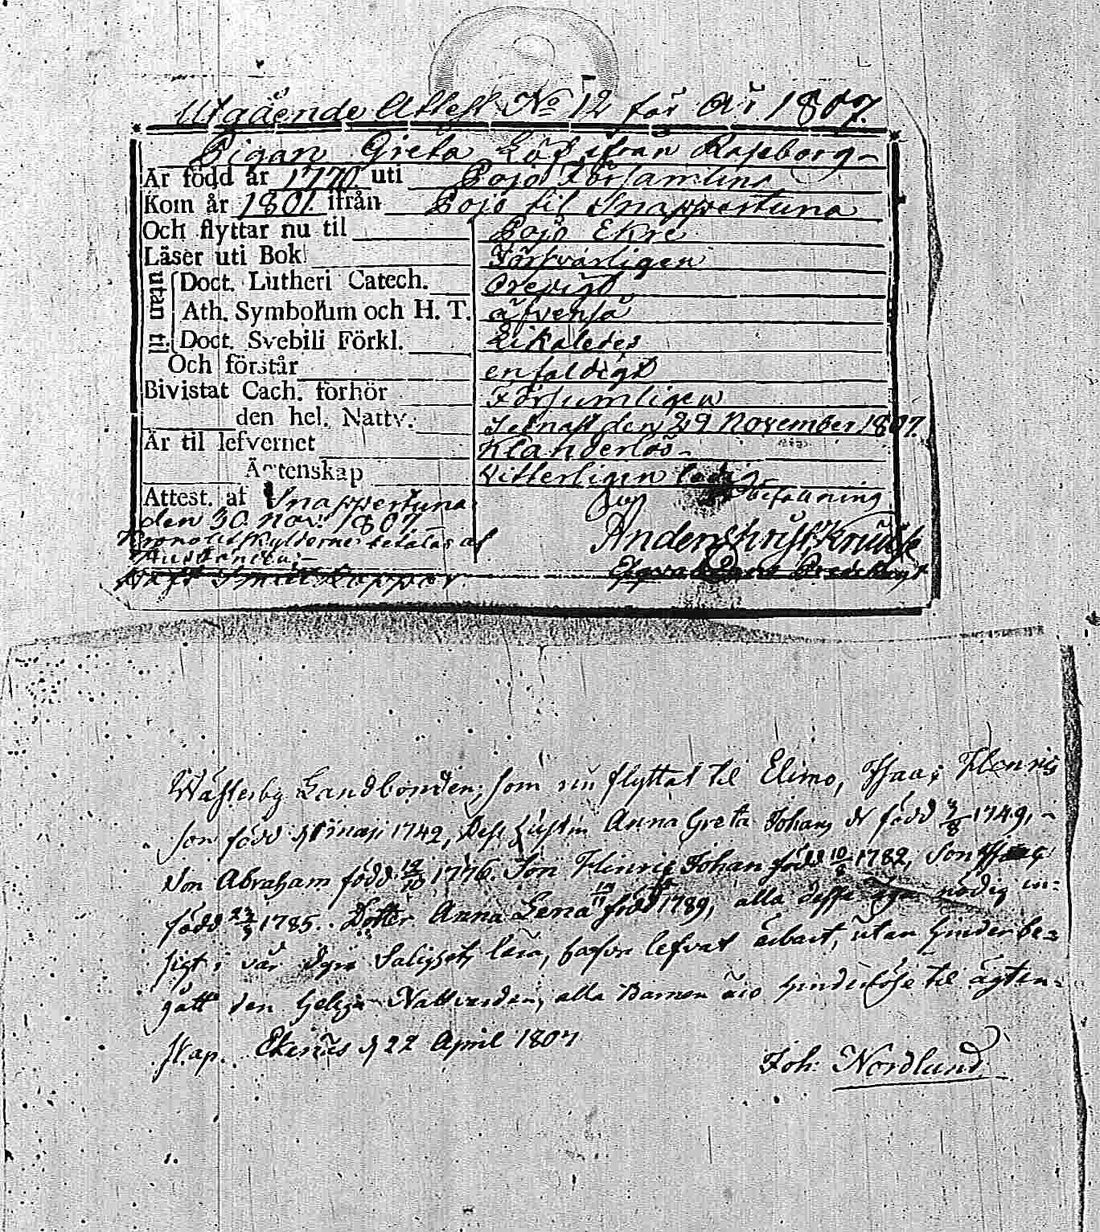 Utgående Attest No 12 för År 1807.
Pigan Greta Löf ifrån Raseborg
Är född år 1770 uti Pojo Församling
Kom år 1801 ifrån Pojo til Snappertuna
Och flyttar nu till Pojo Ekre
Läser uti Bok Försvarligen
utan til. Doct. Lutheri Catech. Oredigt
Ath. Symbolum och H. T. äfvenså
Doct. Svebili Förkl. Likaledes
Och förstår enfaldigt
Bivistat Cach. förhör Försumligen
den hel. Nattv. senast den 29 November 1807.
Är til lefvernet Klanderlös
Äctenskap Vitterligen ledig
Attest. af Snappertuna befallning
den 30 Nov: 1807 Anders Christ. Kruus
betalas af
Wästerby Landbonden, som nu flyttat til Elimo, Isaac Henrics
son född d 1 maji 1742, Dess Hustru Anna Greta Johans dr född 3/8 1749,
Son Abraham född 12/10 1776. Son Henric Johan född 10/8 1782, Son Isaac
född 23/9 1785. Dotter Anna Lena född 1789, alla dessa äga nödig in-
sigt i vår dyra Salighets lära, hafva lefvat ärbart, utan hinder be-
gått den Helga Nattvarden, alla Barnen äro hinderlöse til ägten-
skap. Ekenäs d 22 April 1807
Joh: Nordlund